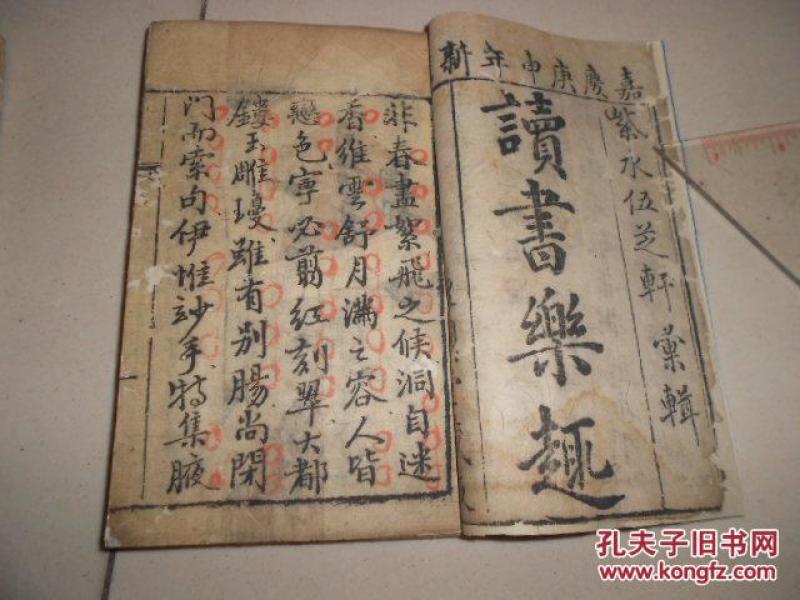 嘉慶庚申年新
紫水伍芝軒彙輯
讀書樂趣
非春盡絮飛之候洞自迷
香維雲舒月滿之容人皆
色寧必剪紅刻翠大都
鏤玉雕瓊雖有別腸尚閉
門而索句伊惟妙手特集腋
孔夫子旧书网
www.kongfz.com